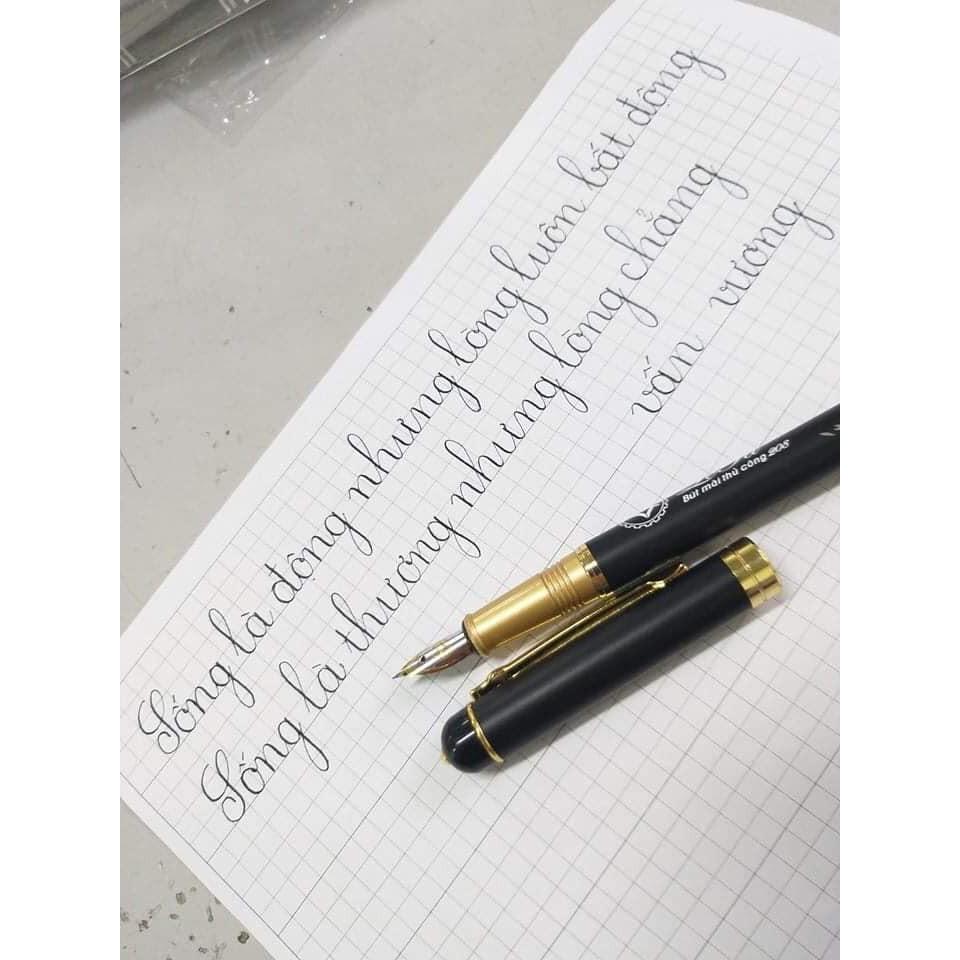 Sống là động nhưng lòng luôn bất động
Sống là thương nhưng lòng chẳng
vấn vương
Bút mài thủ công 208